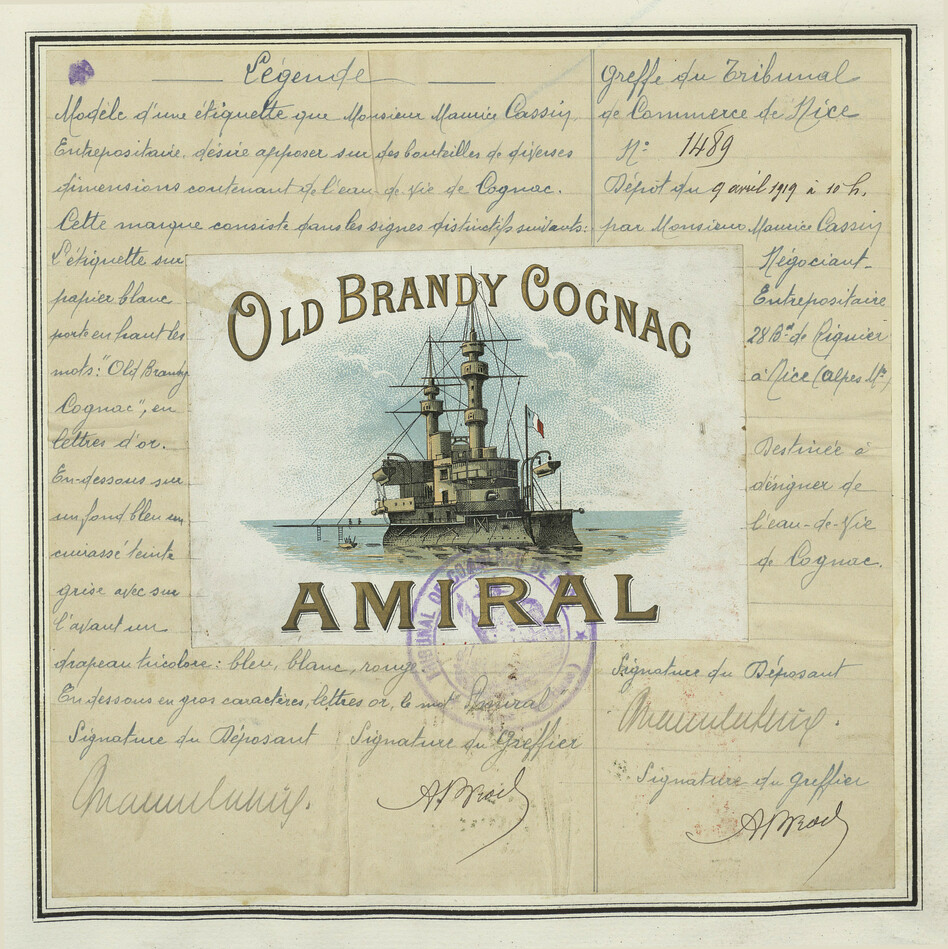 Légende
Modèle d'une étiquette que Monsieur Maurice Cassin,
Entrepositaire, désire apposer sur des bouteilles de diverses
dimensions contenant de l'eau-de-vie de Cognac.
Cette marque consiste dans les signes distinctifs suivants:
L'étiquette sur
papier blanc
porte en haut les
mots: "Old Brandy
Cognac", en
lettres d'or.
En-dessous sur
un fond bleu un
cuirassé teinte
grise avec sur
l'avant un
drapeau tricolore: bleu, blanc, rouge
En dessous en gros caractères, lettres or, le mot "Amiral"
Signature du Déposant
Signature du Greffier
OLD BRANDY COGNAC
AMIRAL
TRIBUNAL DE COMMERCE DE
Greffe du Tribunal
de Commerce de Nice
N° 1489
Dépôt du 9 avril 1919 à 10 h.
par Monsieur Maurice Cassin
Négociant-
Entrepositaire
28 Bd de Riquier
à Nice (Alpes Mmes)
Destinée à
désigner de
l'eau-de-Vie
de Cognac.
Signature du Déposant
Signature du greffier